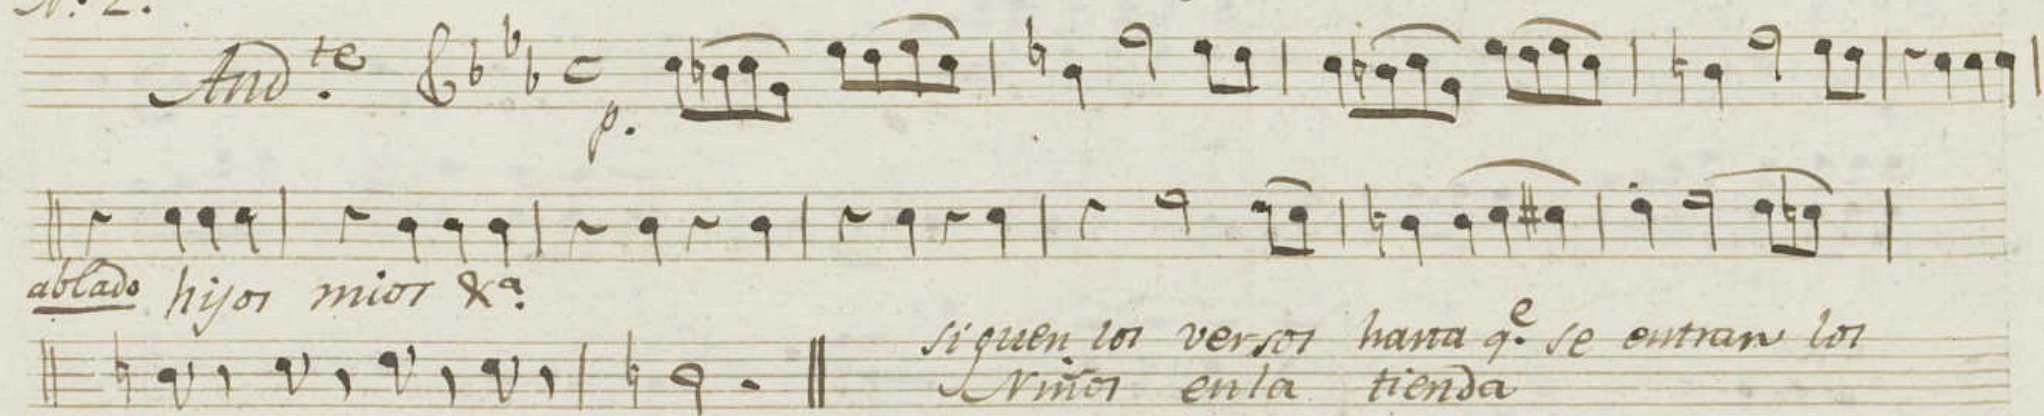 Nº 2.
And.te
p.
ablado hijos mios &a.
siguen los versos hasta q.e se entran los
Niños en la tienda